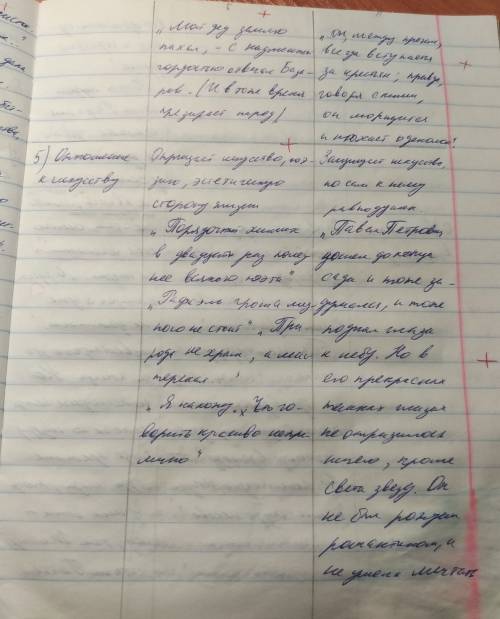 „Мой дед землю
пахал, - с надменною
гордостью отвечал База-
ров. (И в тоже время
презирает народ)
„он, между прочим,
всегда вступается
за крестьян; правда,
говоря с ними,
он морщится
и нюхает одеколон"
5) Отношение
к искусству
Отрицает искусство, поэ-
зию, эстетическую
сторону жизни
„Порядочный химик
в двадцать раз полез-
нее всякого поэта"
„Рафаэль гроша мед-
ного не стоит" „При-
рода не храм, а мас-
терская"
„Я нахожу, что го-
ворить красиво непри-
лично"
Защищает искусство,
но сам к нему
равнодушен.
„Павел Петрович
дошел до конца
сада и тоже за-
думался, и тоже
поднял глаза
к небу. Но в
его прекрасных
темных глазах
не отразилось
ничего, кроме
света звезд. Он
не был рожден
романтиком, и
не умела мечтать